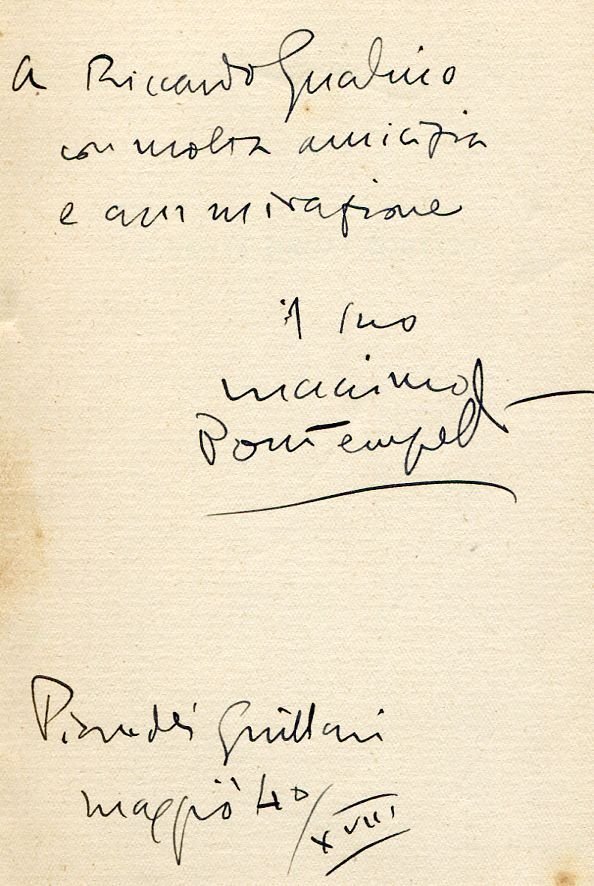 a Riccardo Gualino
con molta amicizia
e ammirazione
il suo
Massimo
Bontempelli
Pian dei Giullari
maggio 40/XVIII